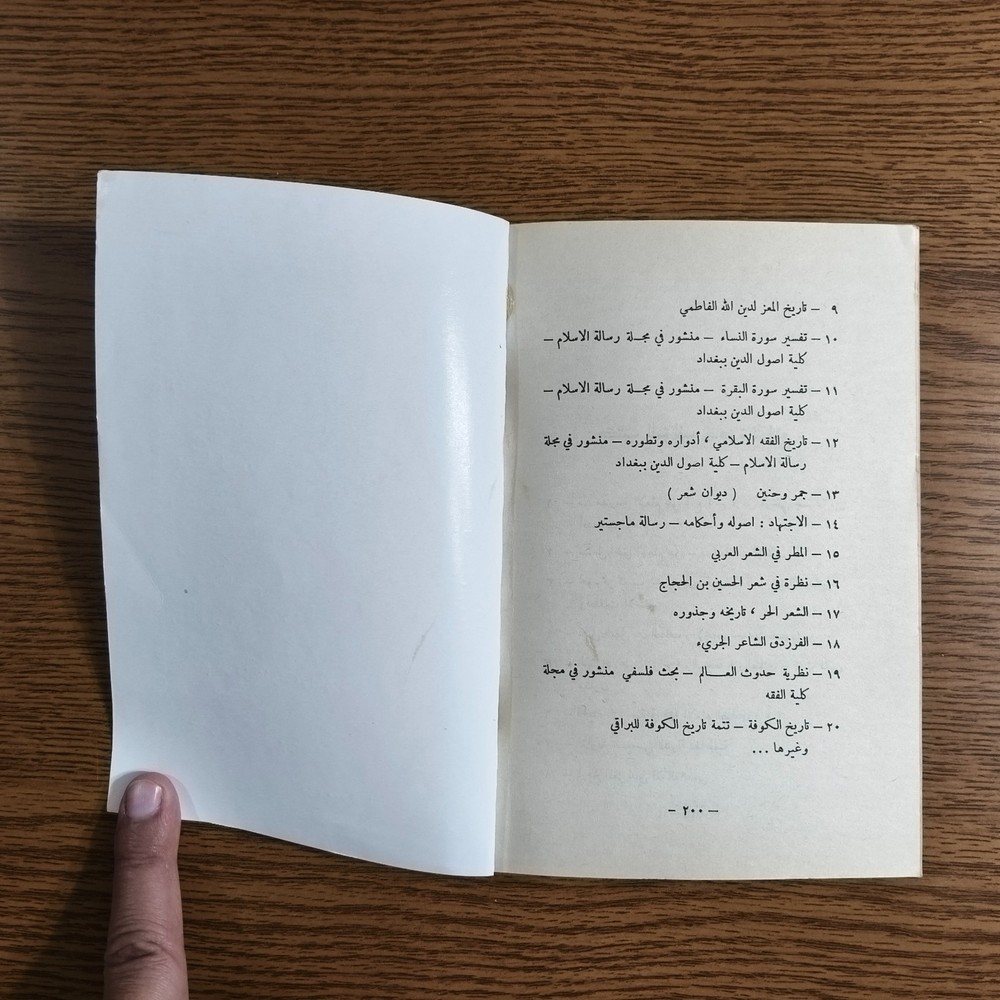 ٩ – تاريخ المعز لدين الله الفاطمي
١٠ – تفسير سورة النساء – منشور في مجـلة رسالة الاسلام –
كلية اصول الدين ببغداد
١١ – تفسير سورة البقرة – منشور في مجـلة رسالة الاسلام –
كلية اصول الدين ببغداد
١٢ – تاريخ الفقه الاسلامي ، أدواره وتطوره – منشور في مجلة
رسالة الاسلام – كلية اصول الدين ببغداد
١٣ – جمر وحنين ( ديوان شعر )
١٤ – الاجتهاد : اصوله وأحكامه – رسالة ماجستير
١٥ – المطر في الشعر العربي
١٦ – نظرة في شعر الحسين بن الحجاج
١٧ – الشعر الحر ، تاريخه وجذوره
١٨ – الفرزدق الشاعر الجريء
١٩ – نظرية حدوث العـــالم – بحث فلسفي منشور في مجلة
كلية الفقه
٢٠ – تاريخ الكوفة – تتمة تاريخ الكوفة للبراقي
وغيرها ...
– ٢٠٠ –